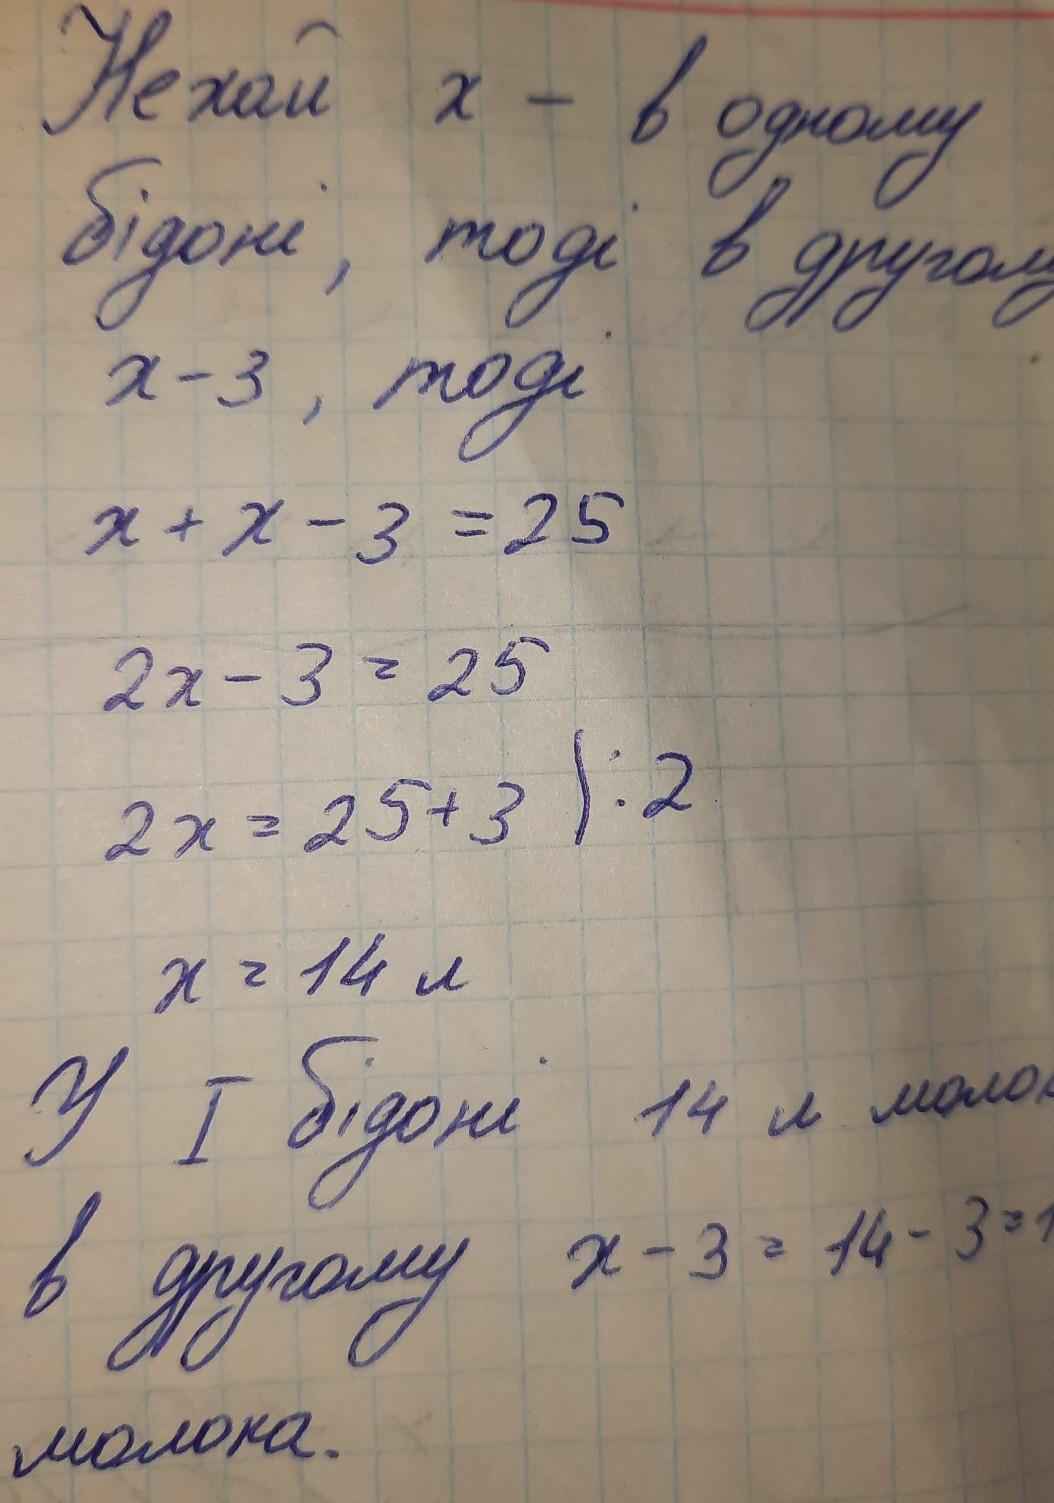 Нехай х - в одному
бідоні, тоді в другому
х-3, тоді
х + х - 3 = 25
2х - 3 = 25
2х = 25+3 |:2
х = 14 л
У I бідоні 14 л молок
в другому х - 3 = 14 - 3 = 1
молока.